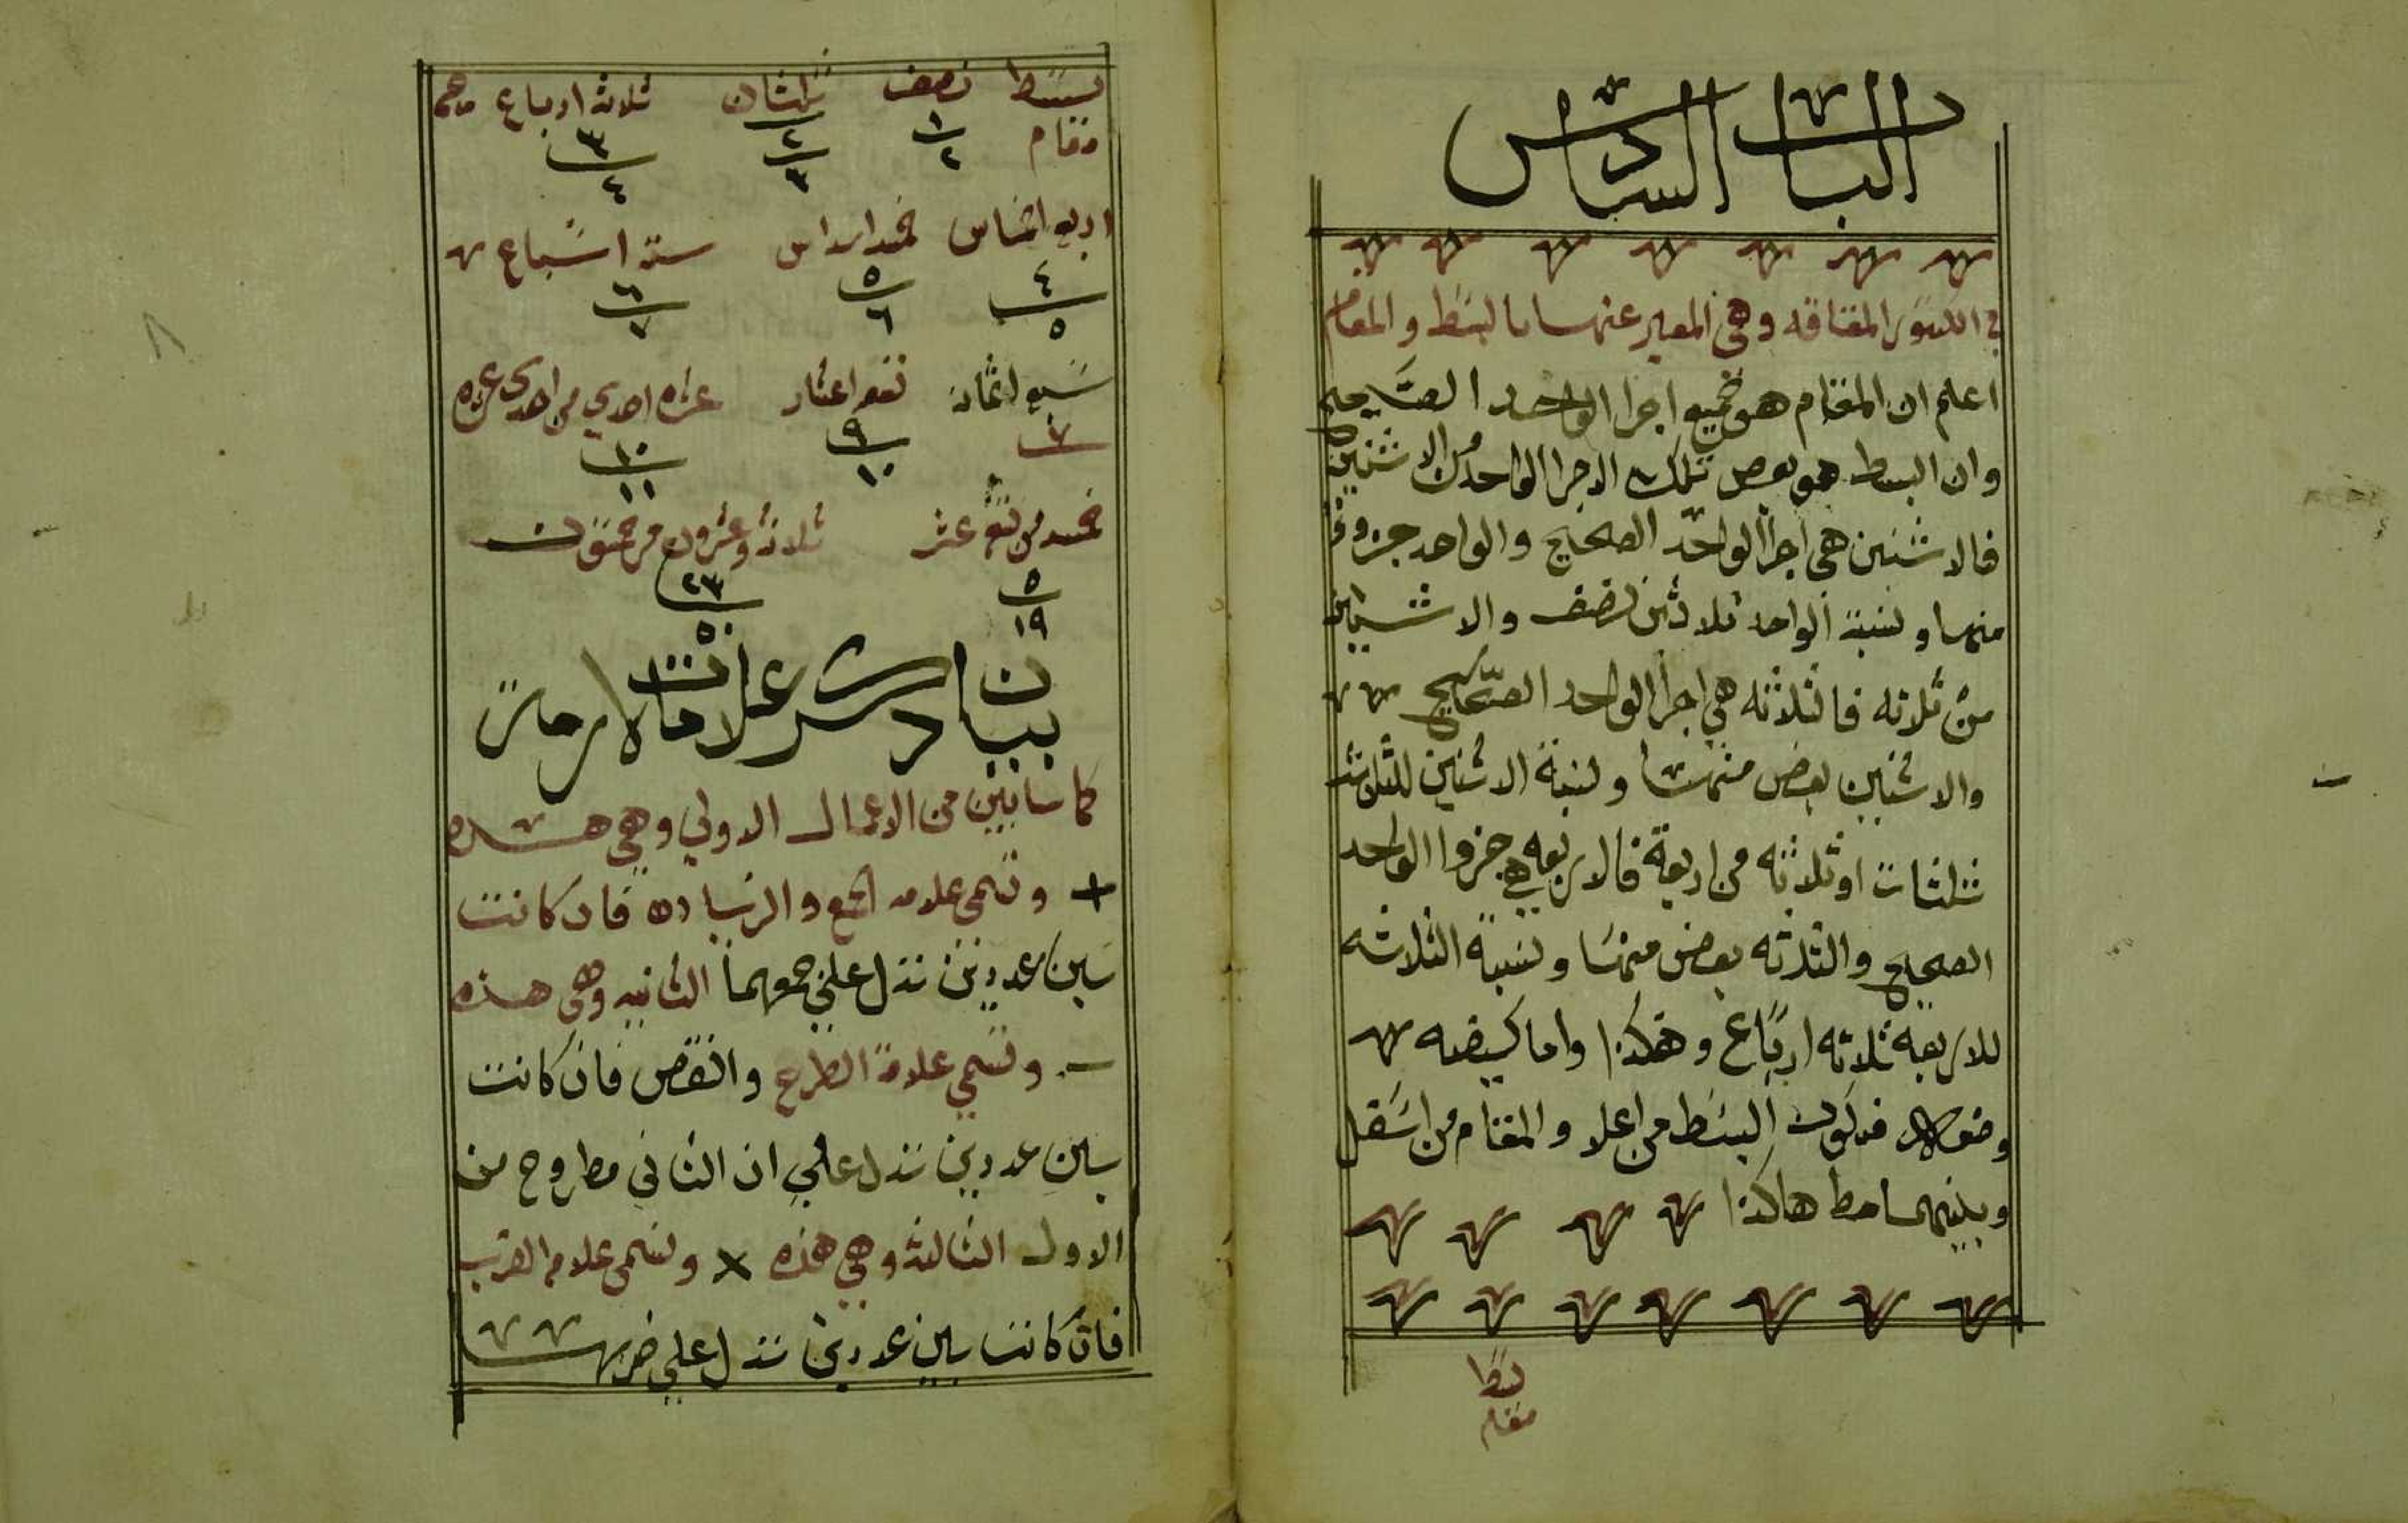 الباب السادس
في الكسور المضافه وهي المعبر عنها بالبسط والمقام
اعلم ان المقام هو جميع اجزا الواحد الصحيح
وان البسط هو بعض تلك الاجزا الواحد من الاثنين
فالاثنين هي اجزا الواحد الصحيح والواحد جزو
منها ونسبة الواحد للاثنين نصف والاثنين
من ثلاثه فالثلاثه هي اجزا الواحد الصحيح
والاثنين بعض منها ونسبة الاثنين للثلاث
ثلثان او ثلاثه من اربعة فالاربعه هي جزوا الواحد
الصحيح والثلاثه بعض منها ونسبة الثلاثه
للاربعه ثلاثه ارباع وهكذا واما كيفيه
وضع فيكون البسط من اعلا والمقام من اسفل
وبينهما خط هاكذا
بسط
مقام
بسط نصف ثلثان ثلاثه ارباع
مقام ١/٢ ٢/٣ ٣/٤
اربع اخماس خمسه اسداس سته اسباع
٤/٥ ٥/٦ ٦/٧
سبع اثمان تسع اعشار عشره احدي من احدي عشره
٧ ٩/١٠ ١٠/١١
خمسه من تسع عشر ثلاثة وعشرون من خمسون
٥/١٩ ٢٣/٥٠
بيان علامات لازمة
كما سابين من الاعمال الاولي وهي هذه
+ وتسمى علامه الجمع والزياده فان كانت
بين عددين تدل علي جمعهما الثانيه وهي هذه
− وتسمي علامة الطرح والنقص فان كانت
بين عددين تدل علي ان الثاني مطروح من
الاول الثالثه وهي هذه × وتسمى علامه الضرب
فان كانت بين عددين تدل علي ضربهما